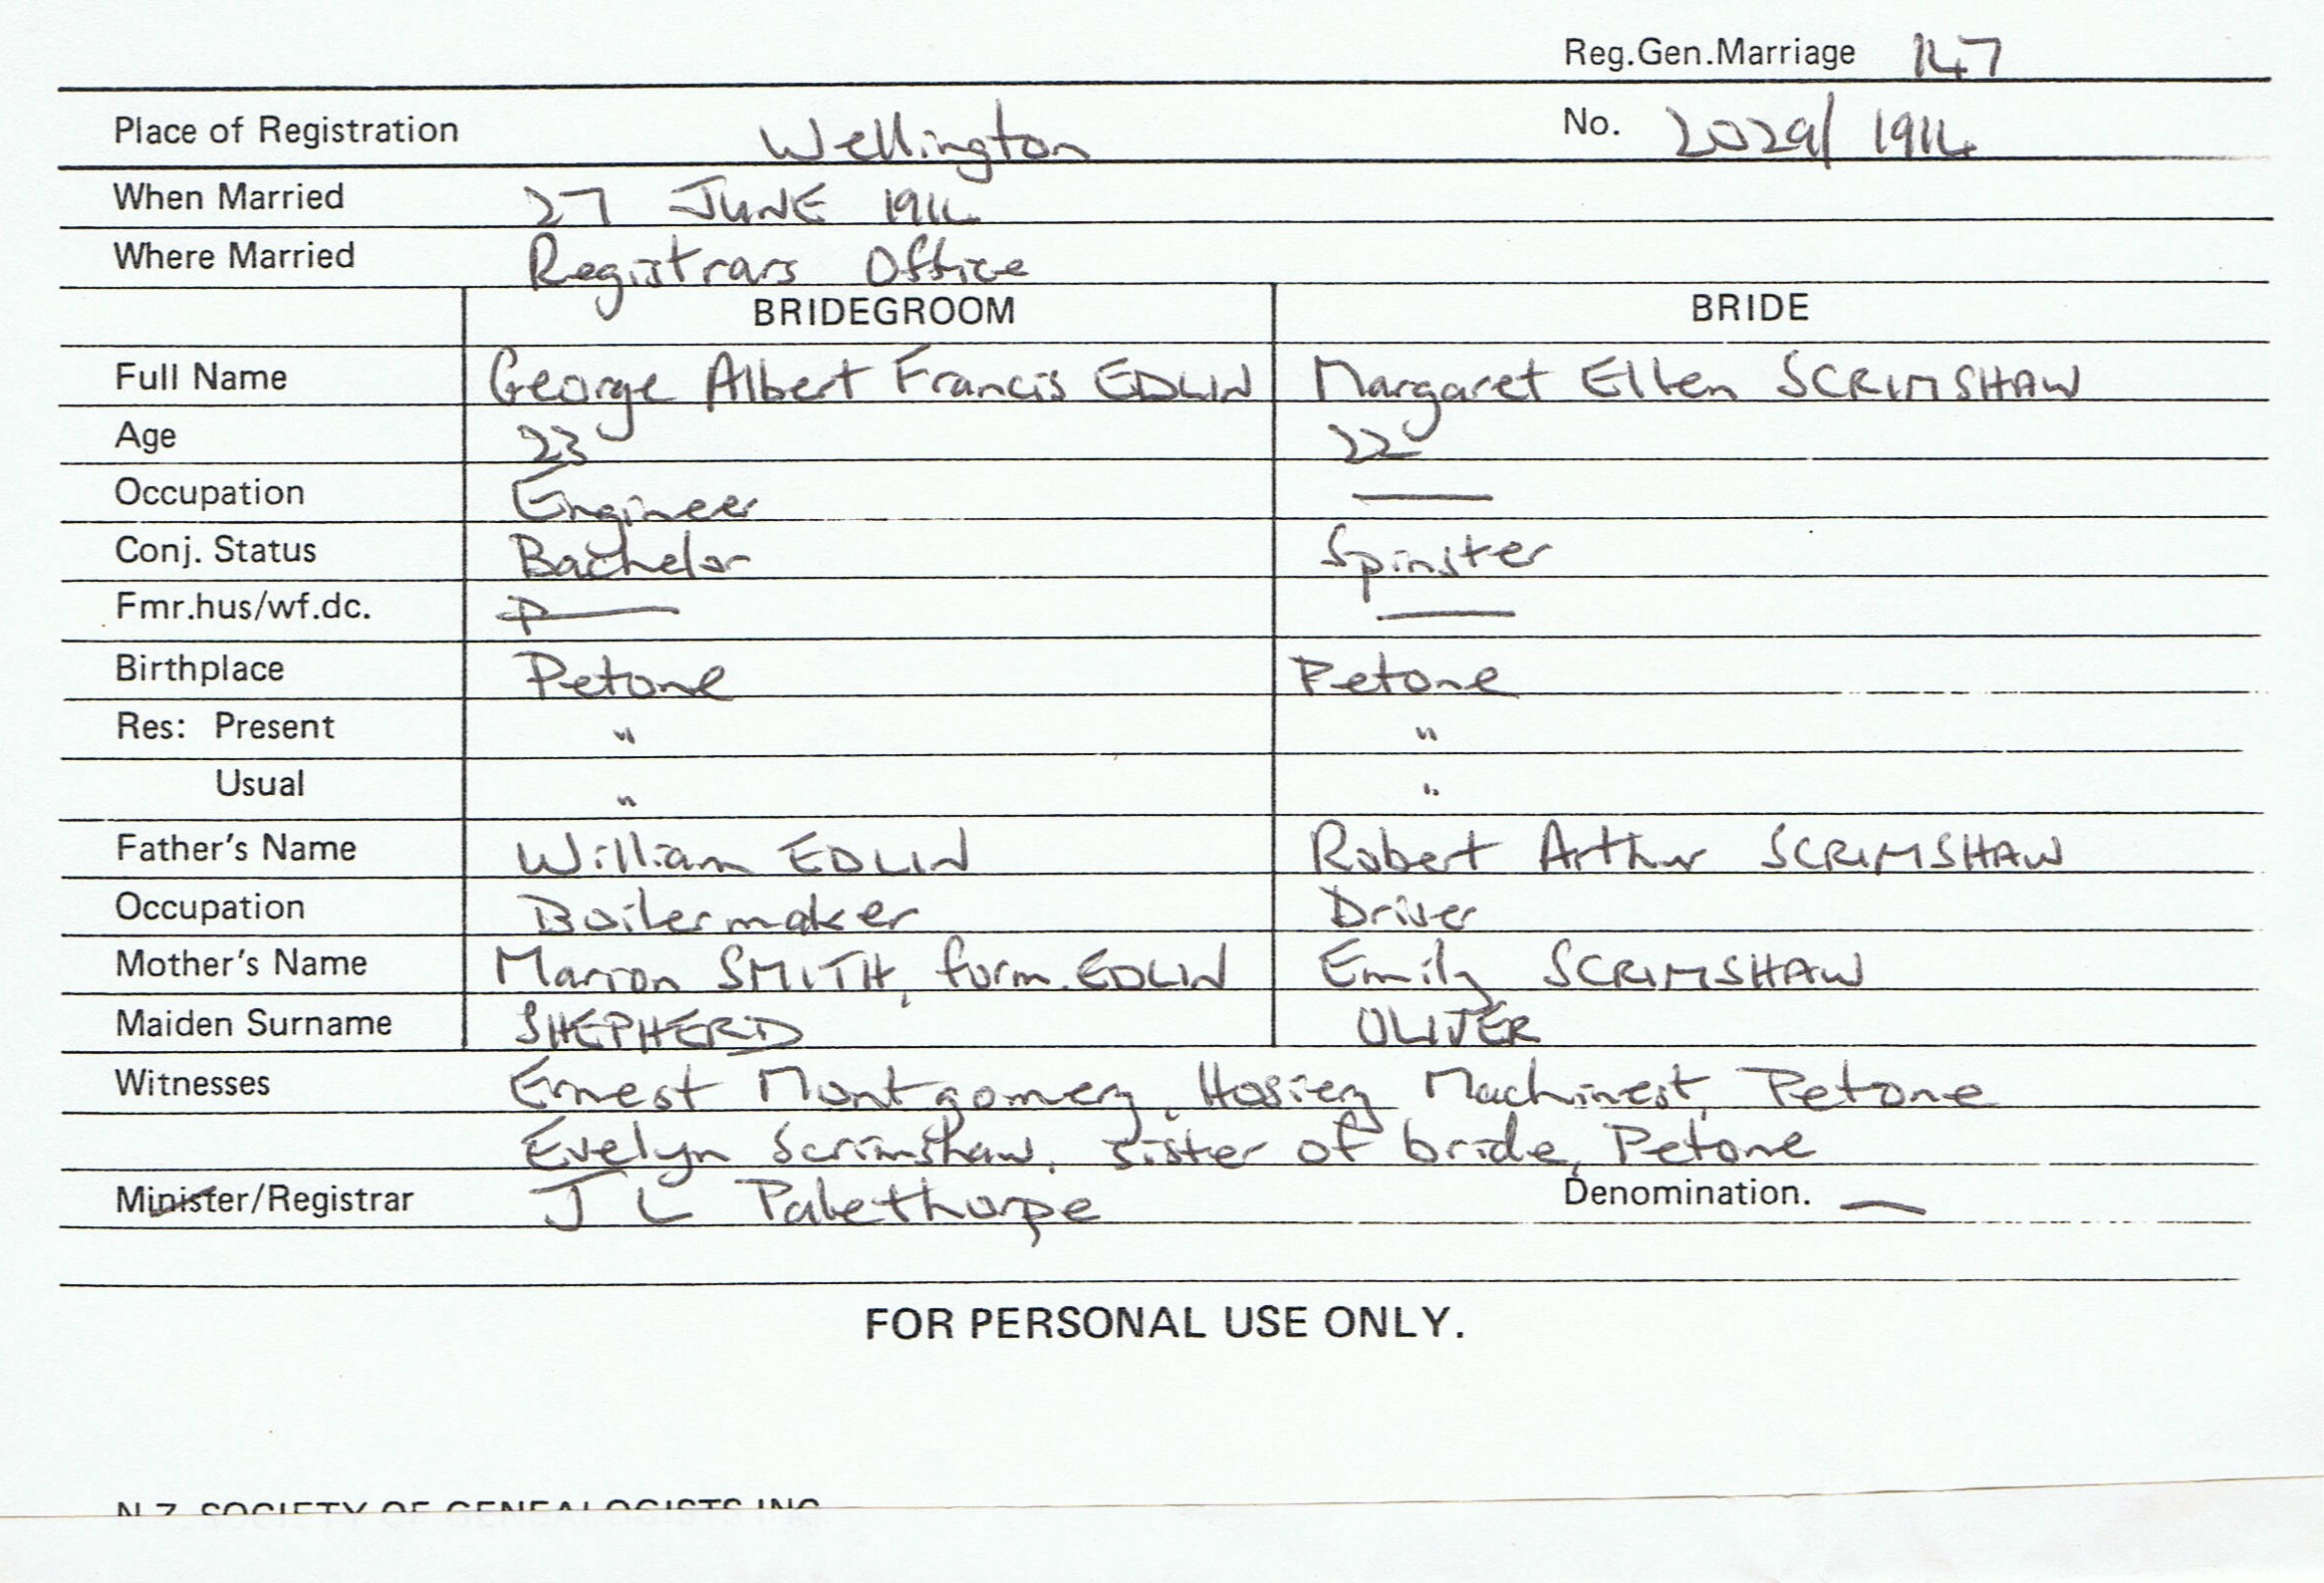 Reg.Gen.Marriage 147
Place of Registration Wellington No. 2029/1914
When Married 27 JUNE 1914
Where Married Registrars Office
BRIDEGROOM BRIDE
Full Name George Albert Francis EDLIN Margaret Ellen SCRIMSHAW
Age 23 22
Occupation Engineer —
Conj. Status Bachelor Spinster
Fmr.hus/wf.dc. — —
Birthplace Petone Petone
Res: Present " "
Usual " "
Father's Name William EDLIN Robert Arthur SCRIMSHAW
Occupation Boilermaker Driver
Mother's Name Marion SMITH, form. EDLIN Emily SCRIMSHAW
Maiden Surname SHEPHERD OLIVER
Witnesses Ernest Montgomery, Hosiery Machinest, Petone
Evelyn Scrimshaw, sister of bride, Petone
Minister/Registrar J L Palethorpe Denomination. —
FOR PERSONAL USE ONLY.
N.Z. SOCIETY OF GENEALOGISTS INC.